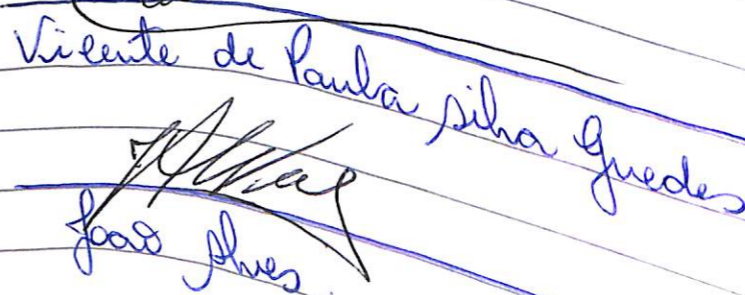 Vicente de Paula Silva Guedes
João Alves